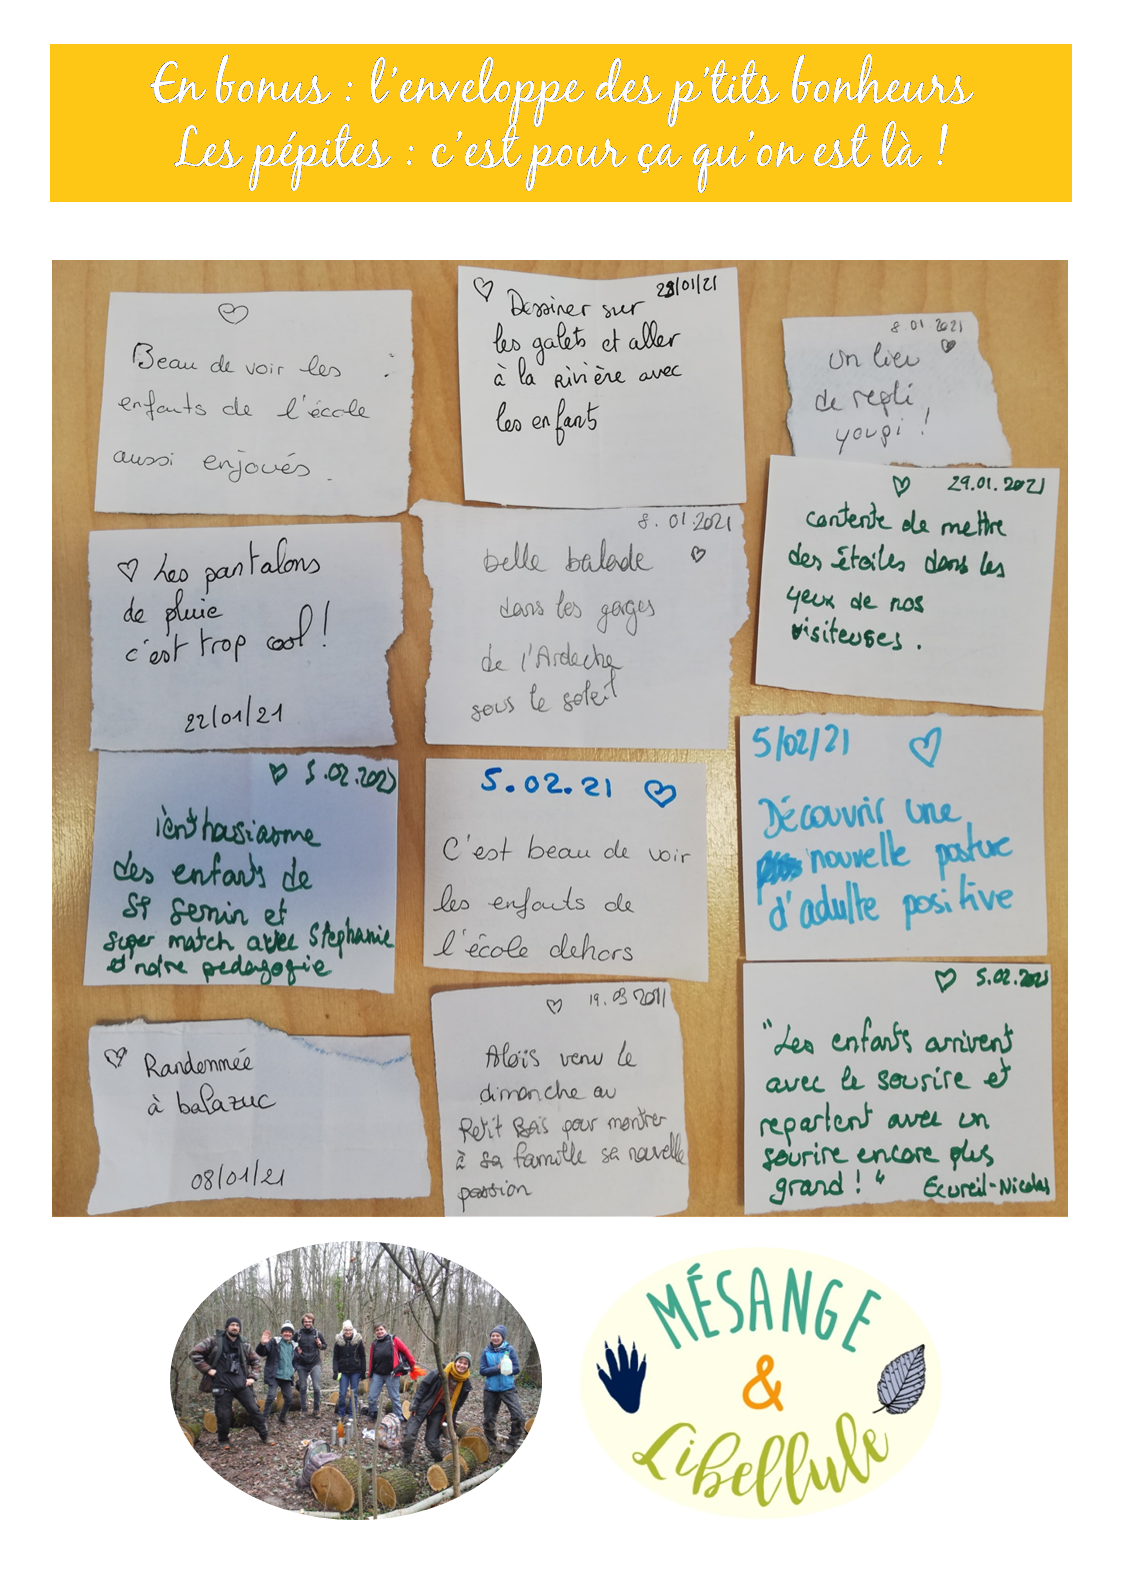 En bonus : l'enveloppe des p'tits bonheurs
Les pépites : c'est pour ça qu'on est là !
Beau de voir les
enfants de l'école
aussi enjoués.
28/01/21
Dessiner sur
les galets et aller
à la Rivière avec
les enfants
8.01.2021
Un lieu
de repli
youpi !
Les pantalons
de pluie
c'est trop cool !
22/01/21
8.01.2021
belle balade
dans les gorges
de l'Ardeche
sous le soleil
29.01.2021
contente de mettre
des étoiles dans les
yeux de nos
visiteuses.
5.02.2021
l'enthasiasme
des enfants de
St Sernin et
super match avec Stéphanie
et notre pedagogie
5.02.21
C'est beau de voir
les enfants de
l'école dehors
5/02/21
Découvrir une
nouvelle posture
d'adulte positive
Randonnée
à balazuc
08/01/21
19.03 2021
Aloïs venu le
dimanche au
Petit Bois pour montrer
à sa famille sa nouvelle
passion
5.02.2021
"Les enfants arrivent
avec le sourire et
repartent avec un
sourire encore plus
grand ! "
Ecureil-Nicolas
MÉSANGE
&
Libellule